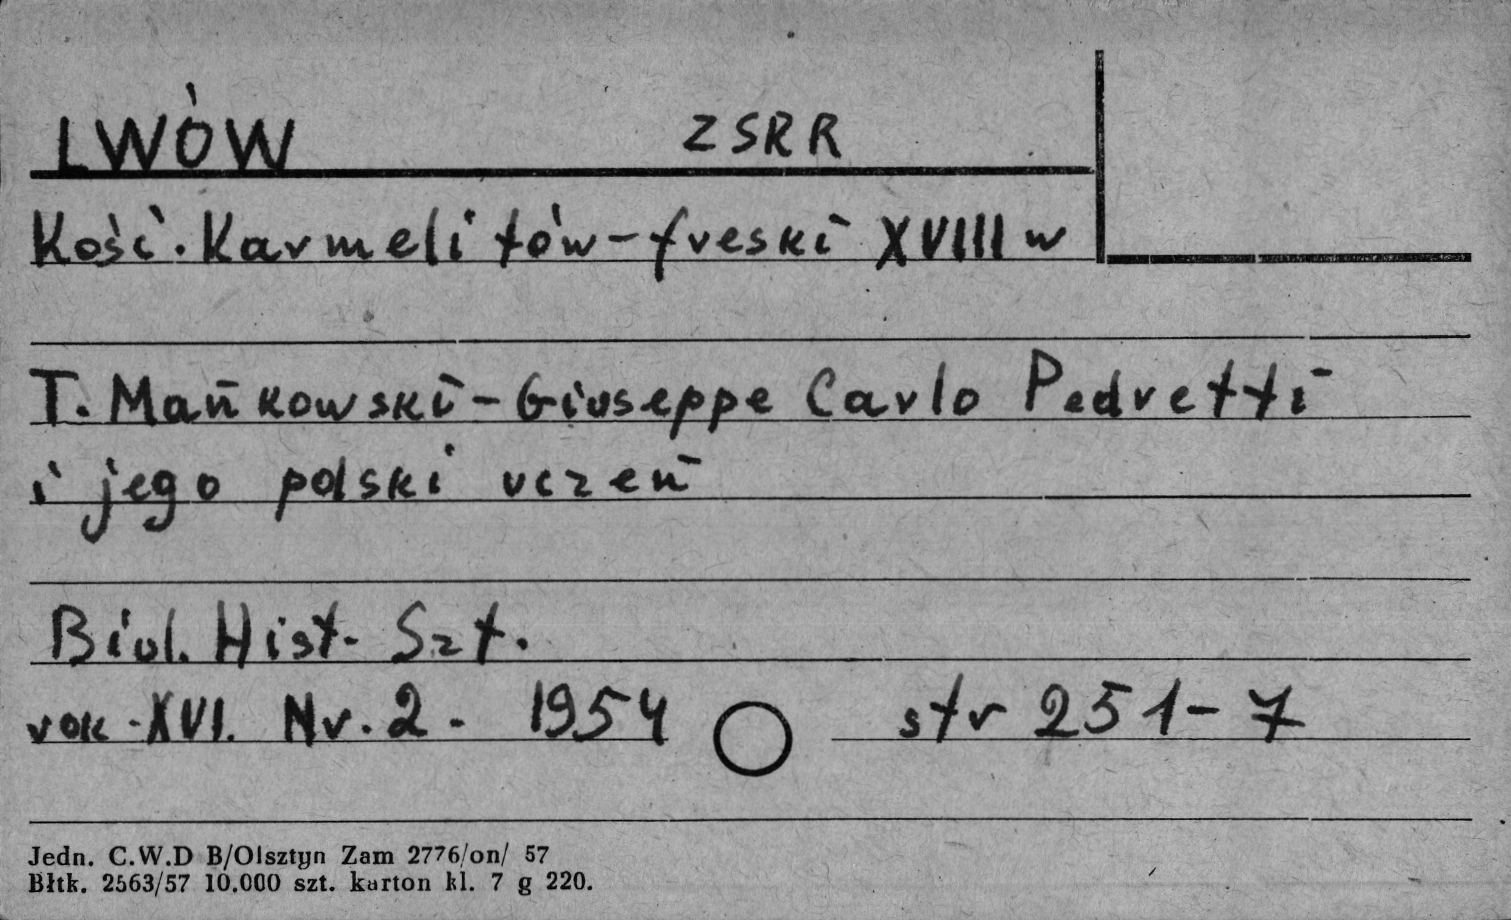 LWÓW ZSRR
Kość. Karmelitów - freski XVIII w
T. Mańkowski - Giuseppe Carlo Pedretti
i jego polski uczeń
Biul. Hist. Szt.
rok - XVI. Nr. 2 - 1954 str 251-7
Jedn. C.W.D B/Olsztyn Zam 2776/on/ 57
Błtk. 2563/57 10.000 szt. karton kl. 7 g 220.